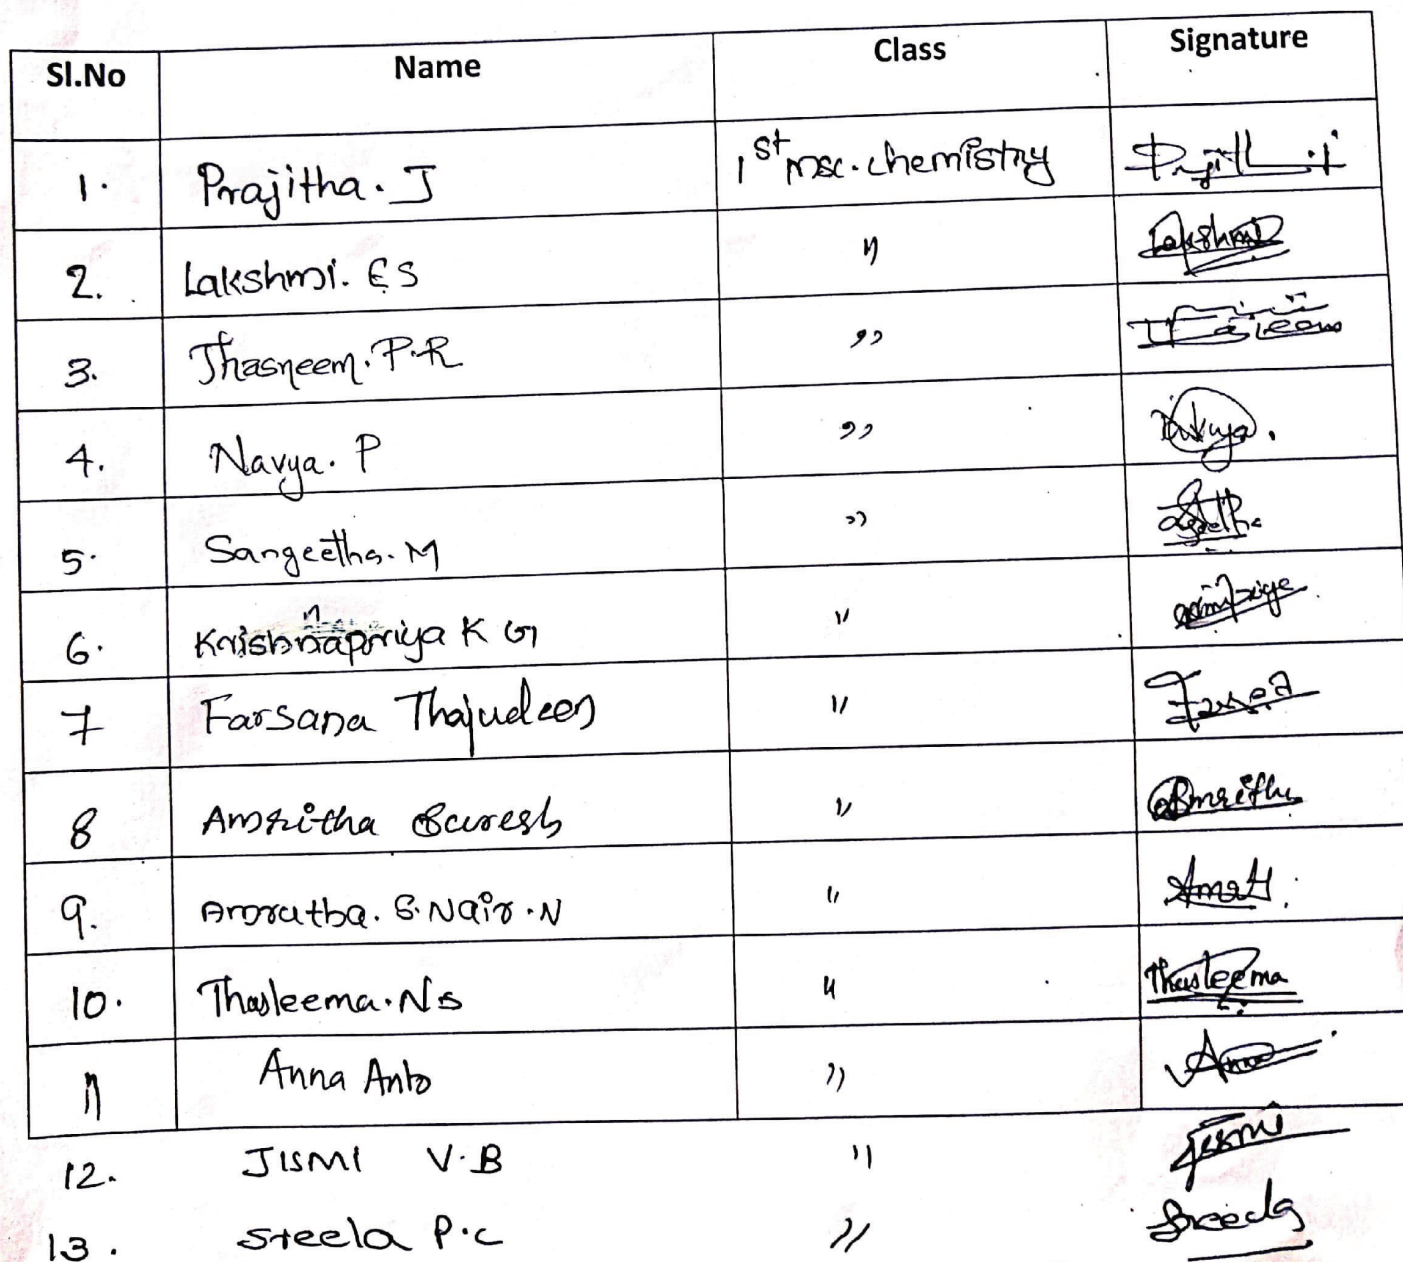 Sl.No Name Class Signature
1. Prajitha. J 1st msc. chemistry
2. Lakshmi. E S " Lakshmi
3. Thasneem. P.R "
4. Navya. P " Navya.
5. Sangeetha. M "
6. Krishnapriya K G "
7 Farsana Thajudeen "
8 Amritha Suresh " Amritha
9. Amrutha. S. Nair. N "
10. Thasleema. Ns " Thasleema
11 Anna Anto " Anna
12. JISMI V.B " Jismi
13. Sreela P.C "